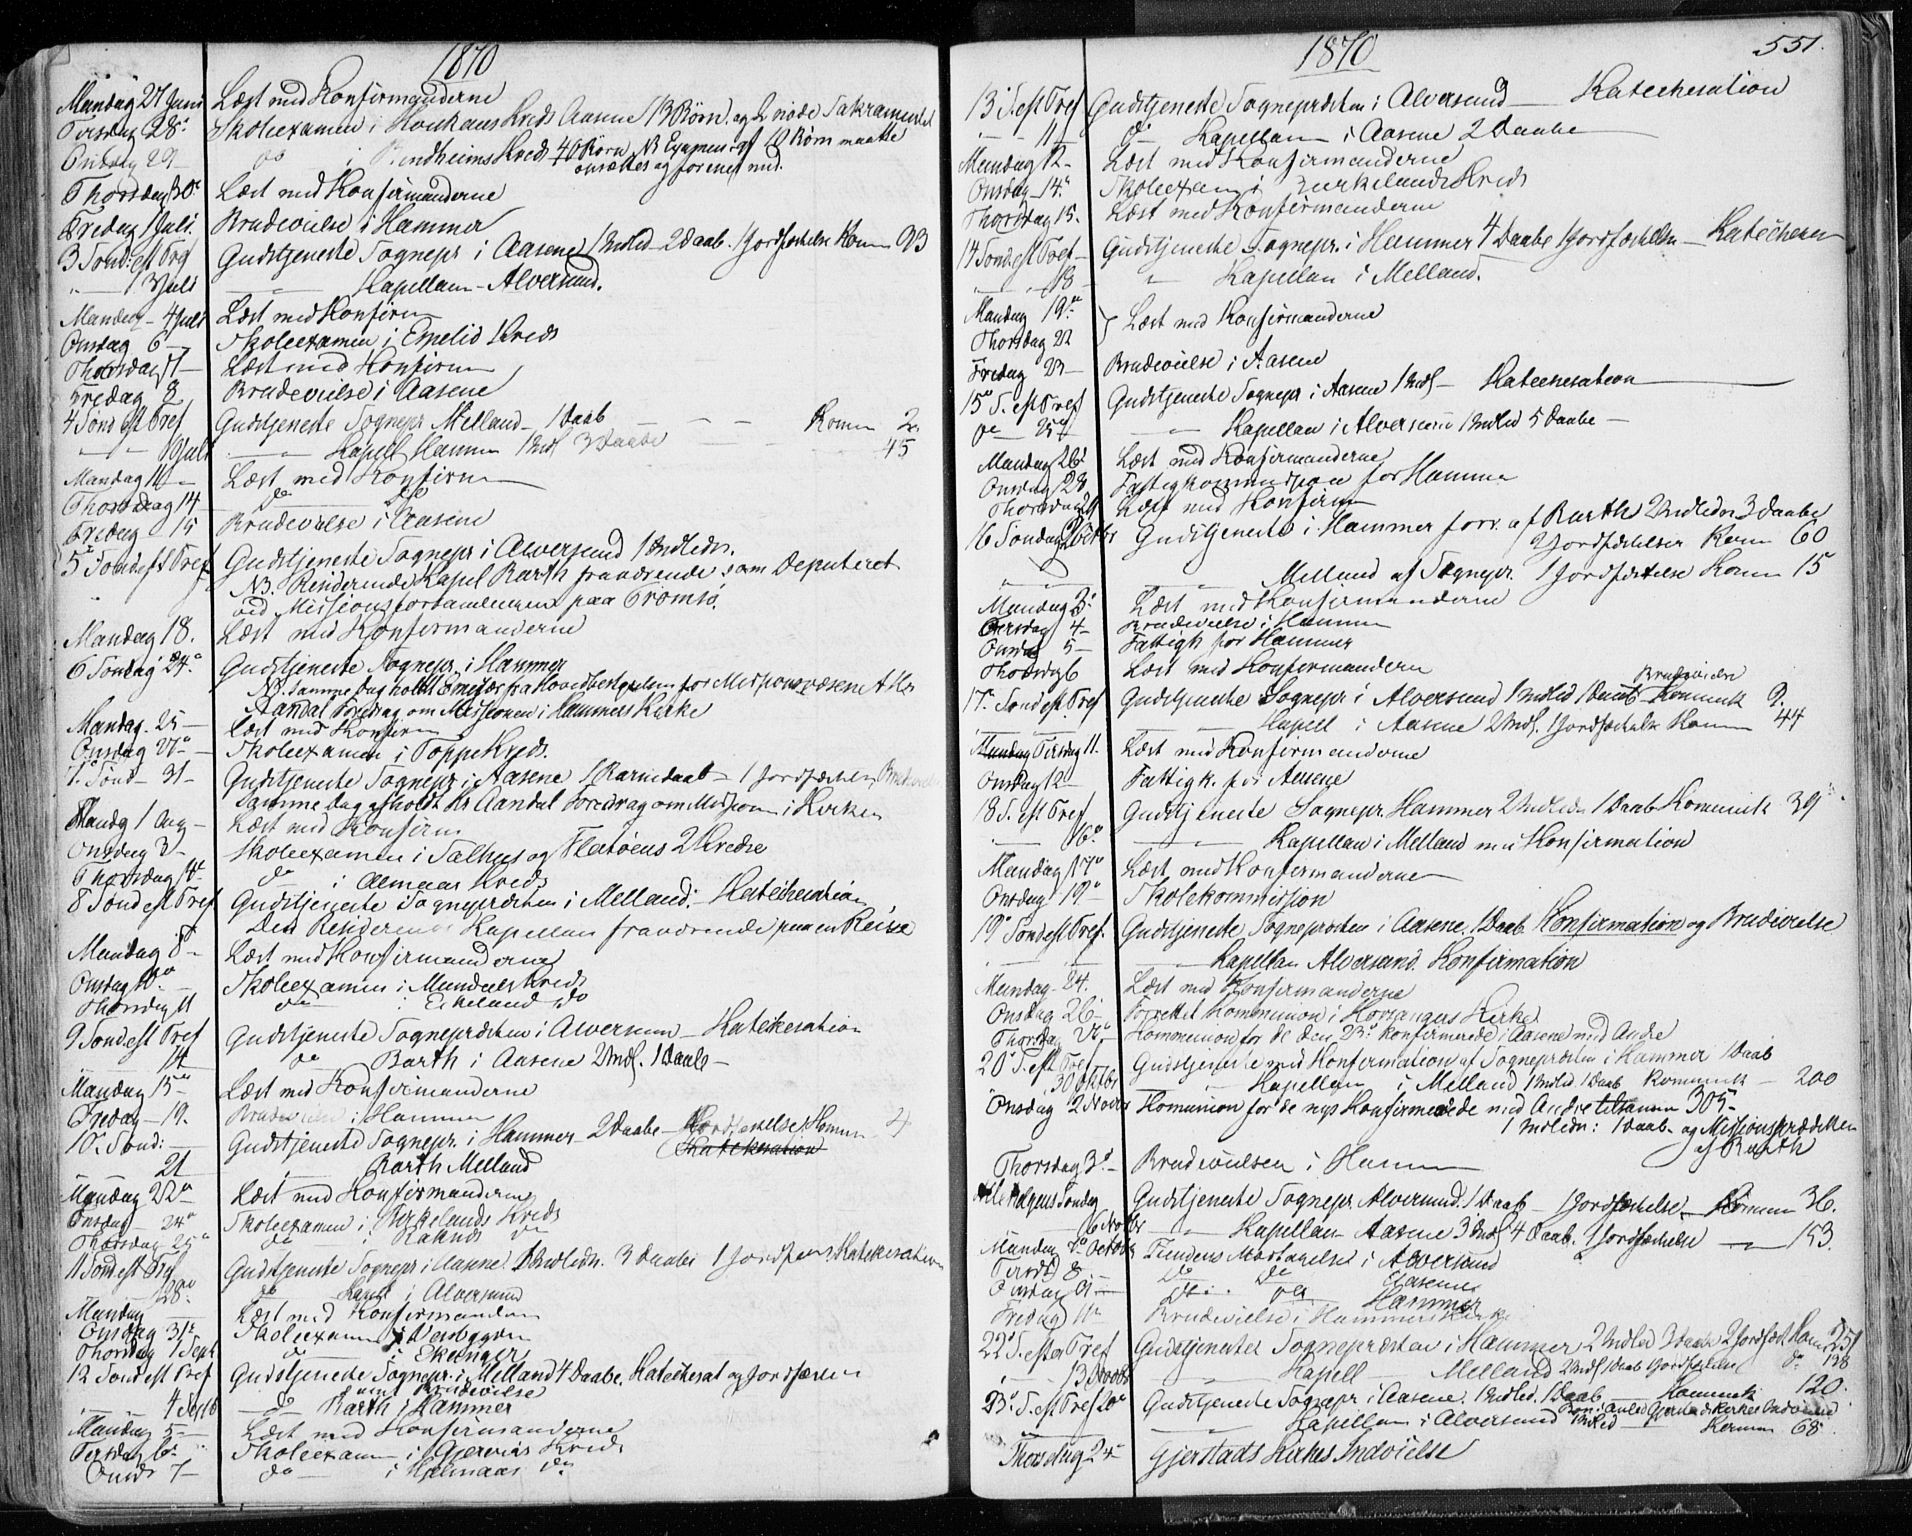 1870
Mandag 27 Juni Læst med Konfirmanderne
Tirsdag 28de Skoleexamen i Kreds Aasene 13 Børn og
Onsdag 29 do i Kreds 40 Børn NB Examen af 10 Børn maatte
Thorsdag 30te Læst med Konfirmanderne
Fredag 1 Juli. Brudevielse i Hammer
3 Sond: eft Tref Gudstjeneste Sognepr i Aasene 1 Indled 2 Daab. 1 Jordfæstelse Komm 93
3 Juli Kapellan - Alversund.
Mandag 4 Juli Læst med Konfirm
Onsdag 6 Skoleexamen i Kreds
Thorsdag 7 Læst med Konfirm
Fredag 8 Brudevielse i Aasene
4 Sond eft Tref Gudstjeneste Sognepr Mælland 1 Daab Komm 2
Juli Kapell Hammer 1 Indl 3 Daabe 45
Mandag 11 Læst med Konfirm
Thorsdag 14 do
Fredag 15 Brudevielse i Aasene
5te Sond eft Tref Gudstjeneste Sognepr i Alversund 1 Indledn.
NB. Residerende Kapel Barth fraværende som Deputeret
ved Missionsforsamlingen paa Tromsø.
Mandag 18. Læst med Konfirmanderne
6 Søndag 24de Gudstjeneste Sognepr. i Hammer
NB. Samme Dag holdt Emissær fra Hovedbestyrelsen for Missionsvæsenet Hr
Aandal Foredrag om Missionen i Hammers Kirke
Mandag 25 Læst med Konfirm
Onsdag 27de Skoleexamen i Toppe Kreds.
7de Sønd 31 Gudstjeneste Sognepr. i Aasene 1 Barnedaab 1 Jordfæstelse
Samme Dag afholdt Hr Aandal Foredrag om Mission i Kirken
Mandg 1 Aug Læst med Konfirm
Onsdag 3 Skoleexamen i Salhus og Flatøens 2 Kredse
Thorsdag 4de do i Almaas Kreds
8 Sond eft Tref Gudstjeneste Sognepræsten i Mælland. Katechesation
Den Residerende Kapellan fraværende paa en Reise
Mandag 8de Læst med Konfirmanderne
Onsdag 10de Skoleexamen i Kreds
Thorsdag 11 do i Eikeland do
9 Sond eft Tref Gudstjeneste Sognepræsten i Alversund Katekesation
14 do Barth i Aasene 2 Indl. 1 Daab
Mandag 15de Læst med Konfirmanderne
Fredag 19. Brudevielse i Hammer
10de Sond: Gudstjeneste Sognepr. i Hammer 2 Daabe Jordfæstelse Komm 4
Katekesation
21 Barth Mælland
Mandag 22de Læst med Konfirmanderne
Onsdag 24de Skoleexamen i Kreds
Thorsdag 25de do i do
11 Sond eft Tref Gudstjeneste Sognepr i Aasene Indledn. 3 Daabe 1 Jordfæst Katekesation
28de do Kapell i Alversund
Mandag Læst med Konfirmanderne
Onsdag 31te Skoleexamen i
Thorsdag 1 Septb do i Ekanger
12 Sond eft Tref Gudstjeneste Sognepr. i Mælland 4 Daabe. Katechesat og Jordfæstn
samt Brudevielse
4 Septb do Barth i Hammer
Mandag 5 Læst med Konfirmanderne
Tirsdag 6te Skoleexam i Gjervigs Kreds
Onsd 7 do i Hjelmaas do
1870 551.
13 S. eft Tref Gudstjeneste Sognepræsten i Alversund Katechesation
11 do Kapellan i Aasene 2 Daabe
Mandag 12 Læst med Konfirmanderne
Onsdag 14de Skoleexam i Kreds
Thorsdag 15. Læst med Konfirmanderne
14 Sond. eft Tref Gudstjeneste Sognepr. i Hammer 4 Daabe 1 Jordfæstelse
18 Kapellan i Mælland.
Mandag 19de
Thorsdag 22 } Læst med Konfirmanderne
Fredag 23 Brudevielse i Aasene
15de S. eft Tref Gudstjeneste Sognepr i Aasene 1 Indl Katechesation
do 25de Kapellan i Alversund 1 Indled 5 Daabe
Mandag 26de Læst med Konfirmanderne
Onsdag 28 Fattigkommission for Hammer
Thorsdag 29 Læst med Konfirm
16 Sondag 2 Octbr Gudstjeneste i Hammer forr. af Barth 2 Indledn 3 Daabe
2 Jordfæstelser Komm 60
Mælland af Sognepr. 1 Jordfæstelse Komm 15
Mandag 3de Læst med Konfirmanderne
Tirsdag 4 Brudevielse i Hammer
Onsdag 5 Fattigk for Hammer
Thorsdag 6 Læst med Konfirmandern
Brudevielse
17de Sond eft. Tref Gudstjeneste Sognepr i Alversund 1 Indled 1 Daab Kommunik 9.
Kapell i Aasene 2 Indl. 1 Jordfæstelse Komm 44
Mandag Tirsdag 11. Læst med Konfirmanderne
Onsdag 12 Fattigk. for Aasene
18 S. eft Tref Gudstjeneste Sognepr. Hammer 2 Indledn 1 Daab Kommunik 39
16de Kapellan i Mælland med Konfirmation
Mandag 17de Læst med Konfirmanderne
Onsdag 19de Skolekommission
19de Sond eft Tref. Gudstjeneste Sognepræsten i Aasene. 1 Daab Konfirmation og Brudevielse
Kapellan Alversund. Konfirmation
Mandag 24. Læst med Konfirmanderne
Onsdag 26 Forrettet Kommunion i Hosangers Kirke
Thorsdag 27de Kommunion for de den 23de Konfirmerede i Aasene med Andre
20de S. eft Tref Gudstjeneste med Konfirmation af Sognepræsten i Hammer 1 Daab
30 Oktbr Kapellan i Mælland 1 Indled 1 Daab Kommunik 200
Onsdag 2 Novbr Kommunion for de nys Konfirmerede med Andre tilsammen 305
1 Indledn: 1 Daab og Missionsprædiken
af Barth
Thorsdag 3de Brudevielsen i Hammer
Alle Helgens Søndag Gudstjeneste Sognepr. Alversund. 1 Daab 1 Jordfæstelse Kommun 36.
6 Novbr Kapellan Aasene 3 Indl 4 Daab. 2 Jordfæstelse 153.
Mandag 7de Octobr Tiendens Modtagelse i Alversund
Tirsd 8 do do Aasene
Onsdag 9 do do Hammer
Fredag 11te Brudevielse i Hammers Kirke
22de S. efter Tref Gudstjeneste Sognepræsten i Hammer 2 Indled 3 Daabe 2 Jordfæst Komm 251
13 Novbr Kapell Mælland 2 Indl 1 Daab 1 Jordfæstelse do 138
23de S. eft Tref 20de Gudstjeneste Sognepr. i Aasene. 1 Indled. 1 Daab Kommunik 120.
Kapellan i Alversund 1 Indled Komm 68.
Thorsdag 24de Gjerstads Kirkes Indvielse